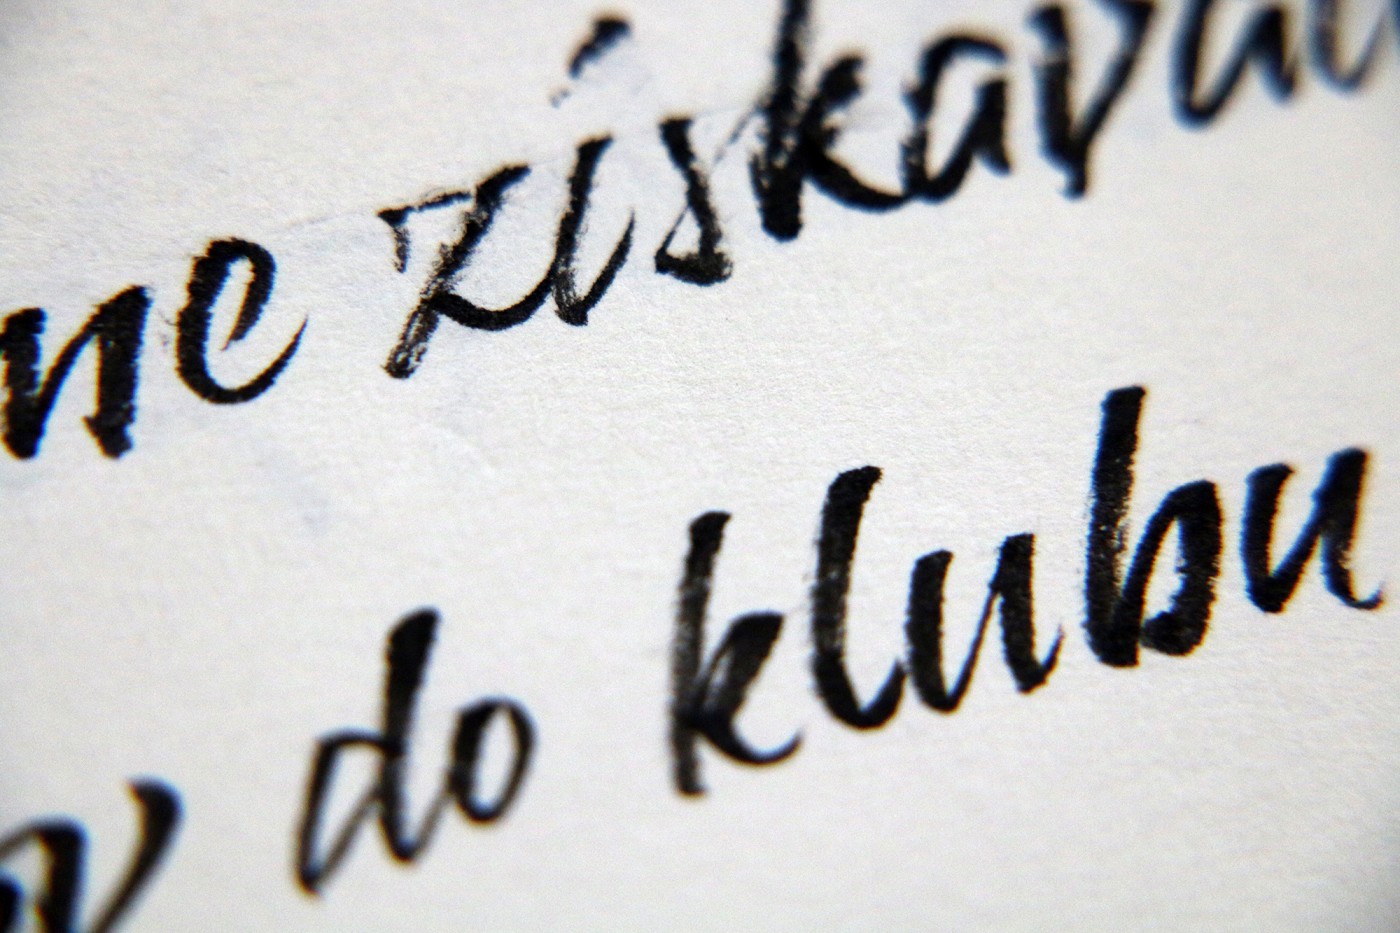 ne získavau
v do klubu